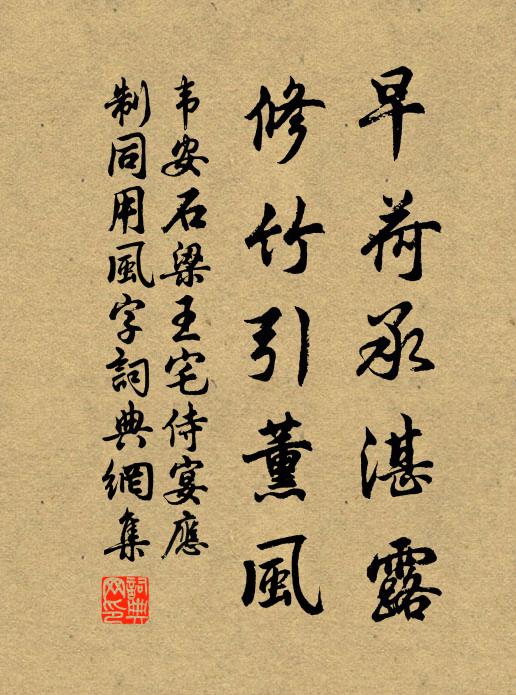 早荷承湛露
修竹引薰風
韦安石梁王宅侍宴應
制同用風字詞典網集
詞典
网印